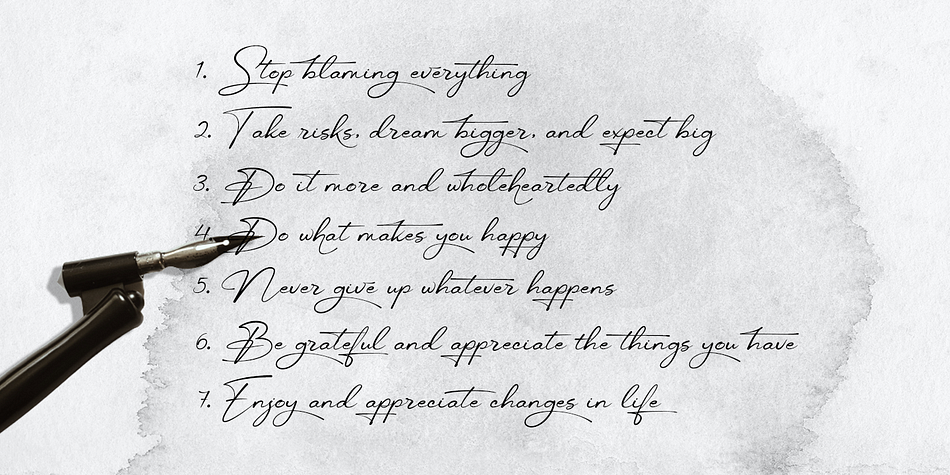 1. Stop blaming everything
2. Take risks, dream bigger, and expect big
3. Do it more and wholeheartedly
4. Do what makes you happy
5. Never give up whatever happens
6. Be grateful and appreciate the things you have
7. Enjoy and appreciate changes in life